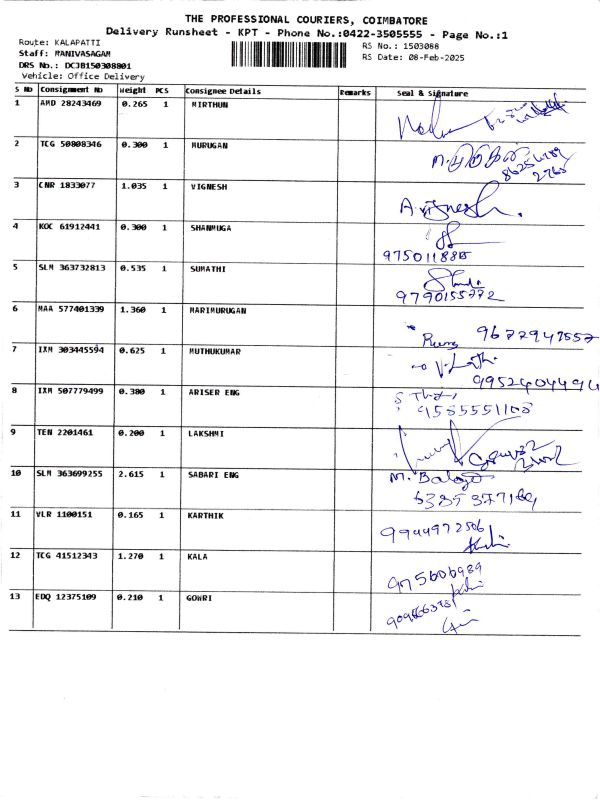 THE PROFESSIONAL COURIERS, COIMBATORE
Delivery Runsheet - KPT - Phone No.:0422-3505555 - Page No.:1
Route: KALAPATTI
RS No.: 1503088
Staff: MANIVASAGAM
RS Date: 08-Feb-2025
DRS No.: DCJB150308801
Vehicle: Office Delivery
S No Consignment No Weight PCS Consignee Details Remarks Seal & Signature
1 AMD 28243469 0.265 1 MIRTHUN
2 TCG 50808346 0.300 1 MURUGAN M. முருகன்
3 CNR 1833077 1.035 1 VIGNESH A. Vignesh.
4 KOC 61912441 0.300 1 SHANMUGA
5 SLM 363732813 0.535 1 SUMATHI
9790155772
6 MAA 577401339 1.360 1 MARIMURUGAN
7 IXM 303445594 0.625 1 MUTHUKUMAR
9952404494
8 IXM 507779499 0.380 1 ARISER ENG
9585551108
9 TEN 2201461 0.200 1 LAKSHMI
10 SLM 363699255 2.615 1 SABARI ENG M. Balaji
11 VLR 1100151 0.165 1 KARTHIK
9944972506
12 TCG 41512343 1.270 1 KALA
13 EDQ 12375109 0.210 1 GOWRI